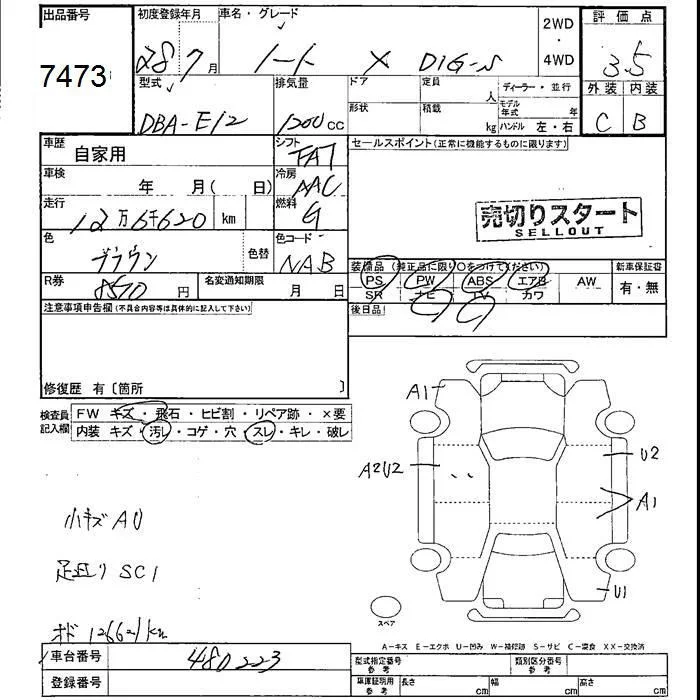 出品番号
7473
初度登録年月
28 7月
車名・グレード
ノート X DIG-S
2WD
・
4WD
評価点
3.5
外装 内装
C B
型式
DBA-E12
排気量
1200cc
ドア
形状
定員
人
積載
kg
ディーラー・並行
モデル年式 年
ハンドル 左・右
車歴
自家用
シフト
FAT
セールスポイント(正常に機能するものに限ります)
車検
年 月( 日)
冷房
AAC
走行
12万6千620 km
燃料
G
売切りスタート
SELLOUT
色
ブラウン
色替
色コード
NAB
装備品(純正品に限り○をつけてください)
新車保証書
PS PW ABS エアB AW
SR ナビ TV カワ
有・無
R券
8570円
名変通知期限
月 日
後日品
注意事項申告欄(不具合内容等は具体的に記入して下さい)
修復歴 有〔箇所 〕
検査員記入欄
FW キズ・飛石・ヒビ割・リペア跡・×要
内装 キズ・汚レ・コゲ・穴・スレ・キレ・破レ
A1
U2
A2U2
A1
U1
小キズAU
足廻りSC1
スペア
A-キズ E-エクボ U-凹み W-補修跡 S-サビ C-腐食 XX-交換済
車台番号
480223
登録番号
型式指定番号
参考
類別区分番号
参考
車庫証明用
参考
長さ cm
幅 cm
高さ cm